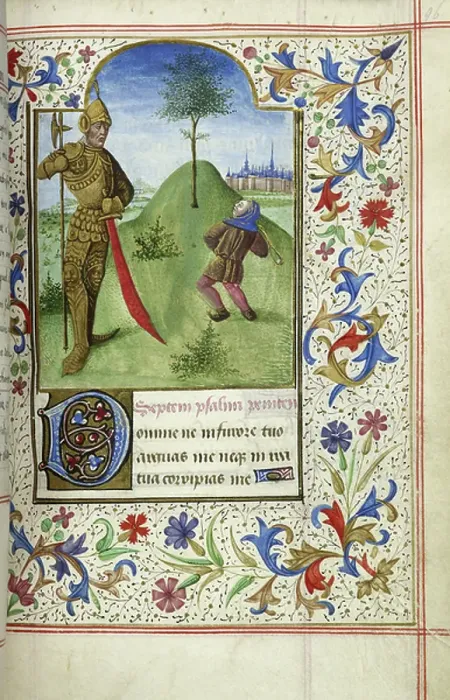 Septem psalmi peniten
Domine ne in furore tuo
arguas me neq in ira
tua corripias me